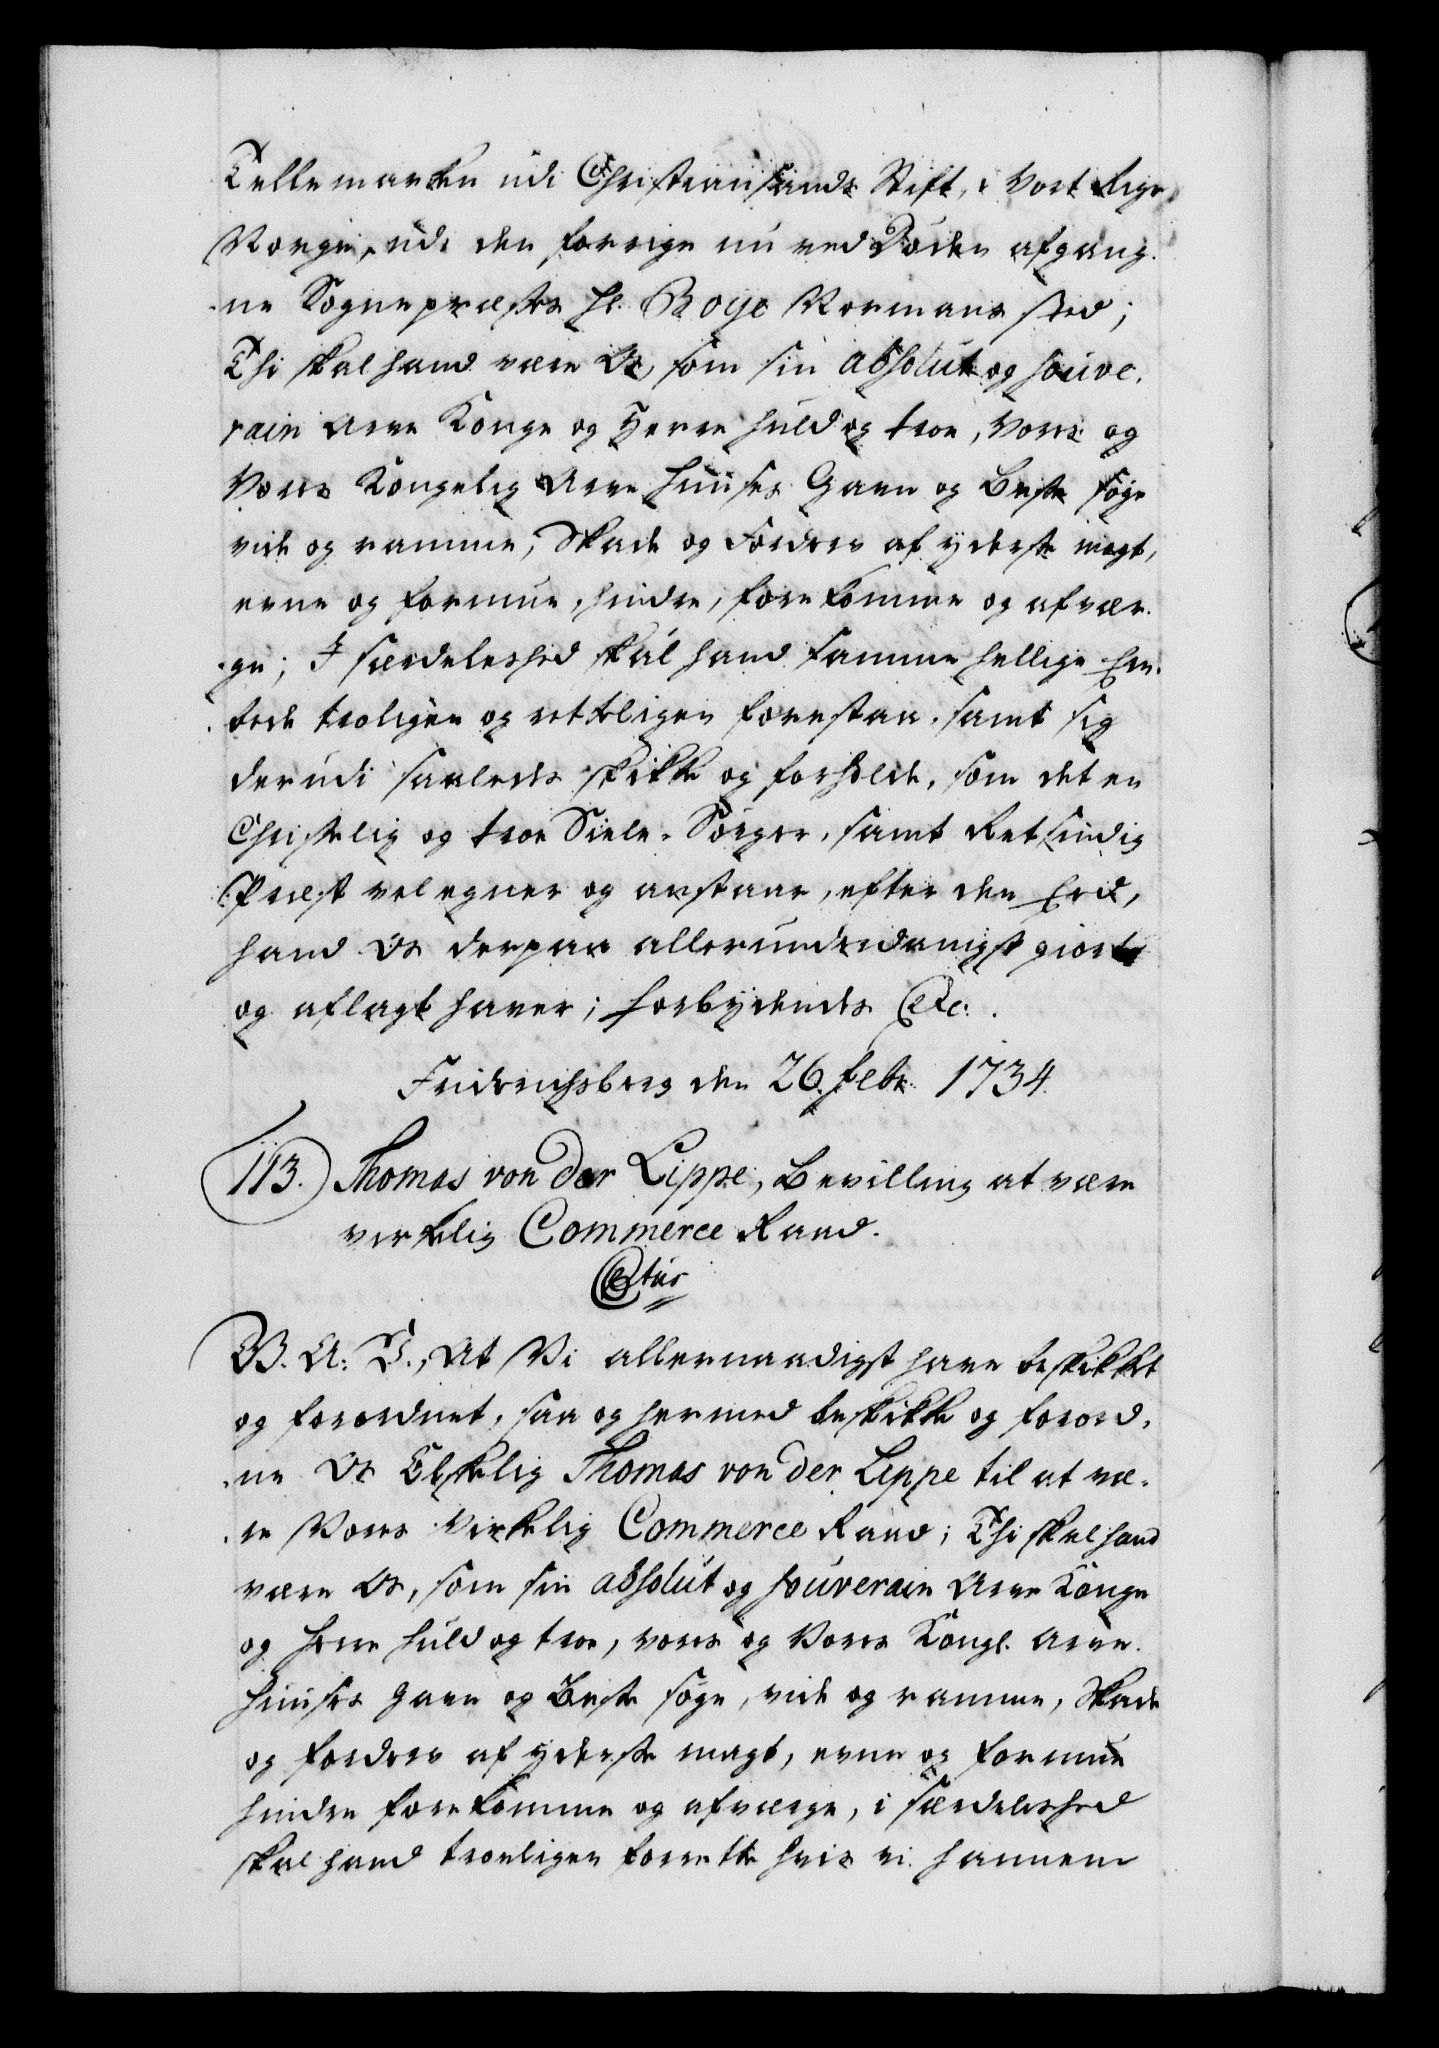 Tellemarken udi Christiansands Stift, i Vort Rige
Norge, udi den forrige nu ved Døden afgang-
ne Sognepræsts Hr. Boye Normans sted;
Thi skal hand være Os, som sin absolut og souve-
rain Arve Konge og Herre huld og troe, Vores og
Vores Kongelig Arve Huuses Gavn og Beste søge
vide og ramme, Skade og Fordrev af yderste magt,
evne og formue, hindre, forekomme og afvær-
ge; I særdeleshed skal hand samme hellige Em-
bede troligen og retteligen forestaa, samt sig
derudi saaledes skikke og forholde, som det en
Christelig og troe Siele-Sørger, samt Retsindig
Præst vel egner og anstaar, efter den Eed,
hand Os derpaa allerunderdanigst giort
og aflagt haver; forbydendes Etc:.
Fridrichsberg den 26. Febr. 1734.
113. Thomas von der Lippe, Bevilling at være
virkelig Commerce Raad.
C6tus
G. A: V., At Vi allernaadigst have beskikket
og forordnet, saa og hermed beskikke og forord-
ne Os Elskelig Thomas von der Lippe til at væ-
re Vores Virkelig Commerce Raad; Thi skal hand
være Os, som sin absolut og souverain Arve Konge
og Herre huld og troe, vores og Vores Kongl. Arve
Huuses gavn og Beste søge, vide og ramme, Skade
og fordrev af yderste magt, evne og formue
hindre forekomme og afværge, i særdeleshed
skal hand troeligen forrette hvis vi hannem